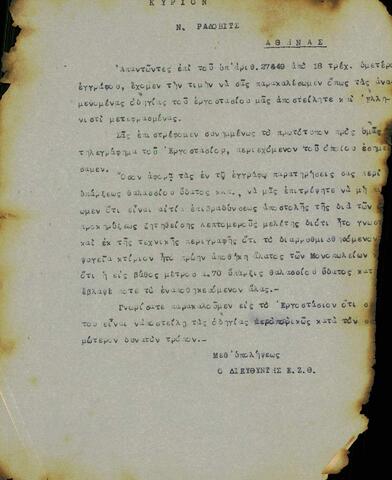 ΚΥΡΙΟΝ
Ν. ΡΑΔΟΒΙΤΣ
ΑΘΗΝΑΣ
Ἀπαντῶντες ἐπί τοῦ ὑπ'ἀριθ.27449 ἀπό 18 τρέχ. ὑμετέρ
ἐγγράφου, ἔχομεν τήν τιμήν νά σᾶς παρακαλέσωμεν ὅπως τάς ἀνα
μενομένας ὁδηγίας τοῦ ἐργοστασίου μᾶς ἀποστείλητε καί Ἑλλη
νιστί μετεφρασμένας.
Σᾶς ἐπιστρέφομεν συνημμένως τό πρωτότυπον πρός ὑμᾶς
τηλεγράφημα τοῦ Ἐργοστασίου, περιεχόμενον τοῦ ὁποίου ἐσημε
σαμεν.
Ὅσον ἀφορᾷ τάς ἐν τῷ ἐγγράφῳ παρατηρήσεις σας περί
ὑπάρξεως θαλασσίου ὕδατος κλπ., νά μᾶς ἐπιτρέψητε νά μή
ωμεν ὅτι εἶναι αἰτία ἐπιβραδύνσεως ἀποστολῆς τῆς διά τῶν
προκηρύξεως ζητηθείσης λεπτομεροῦς μελέτης διότι ἦτο γνωστ
καί ἐκ τῆς τεχνικῆς περιγραφῆς ὅτι τό διαρρυθμισθησόμενον
ψυγεῖα κτίριον ἦτο πρώην ἀποθήκη ἅλατος τῶν Μονοπωλείων
ὅτι ἡ εἰς βάθος μέτρου 1.70 ὕπαρξις θαλασσίου ὕδατος κατ
ἔβλαψε ποτέ τό ἐναποθηκευόμενον ἅλας.-
Γνωρίσατε παρακαλοῦμεν εἰς τό Ἐργοστάσιον ὅτι
του εἶναι νἀποστείλῃ τάς ὁδηγίας ἀεροπορικῶς κατά τόν
μώτερον δυνατόν τρόπον.-
Μεθ'ὑπολήψεως
Ο ΔΙΕΥΘΥΝΤΗΣ Ε.Ζ.Θ.